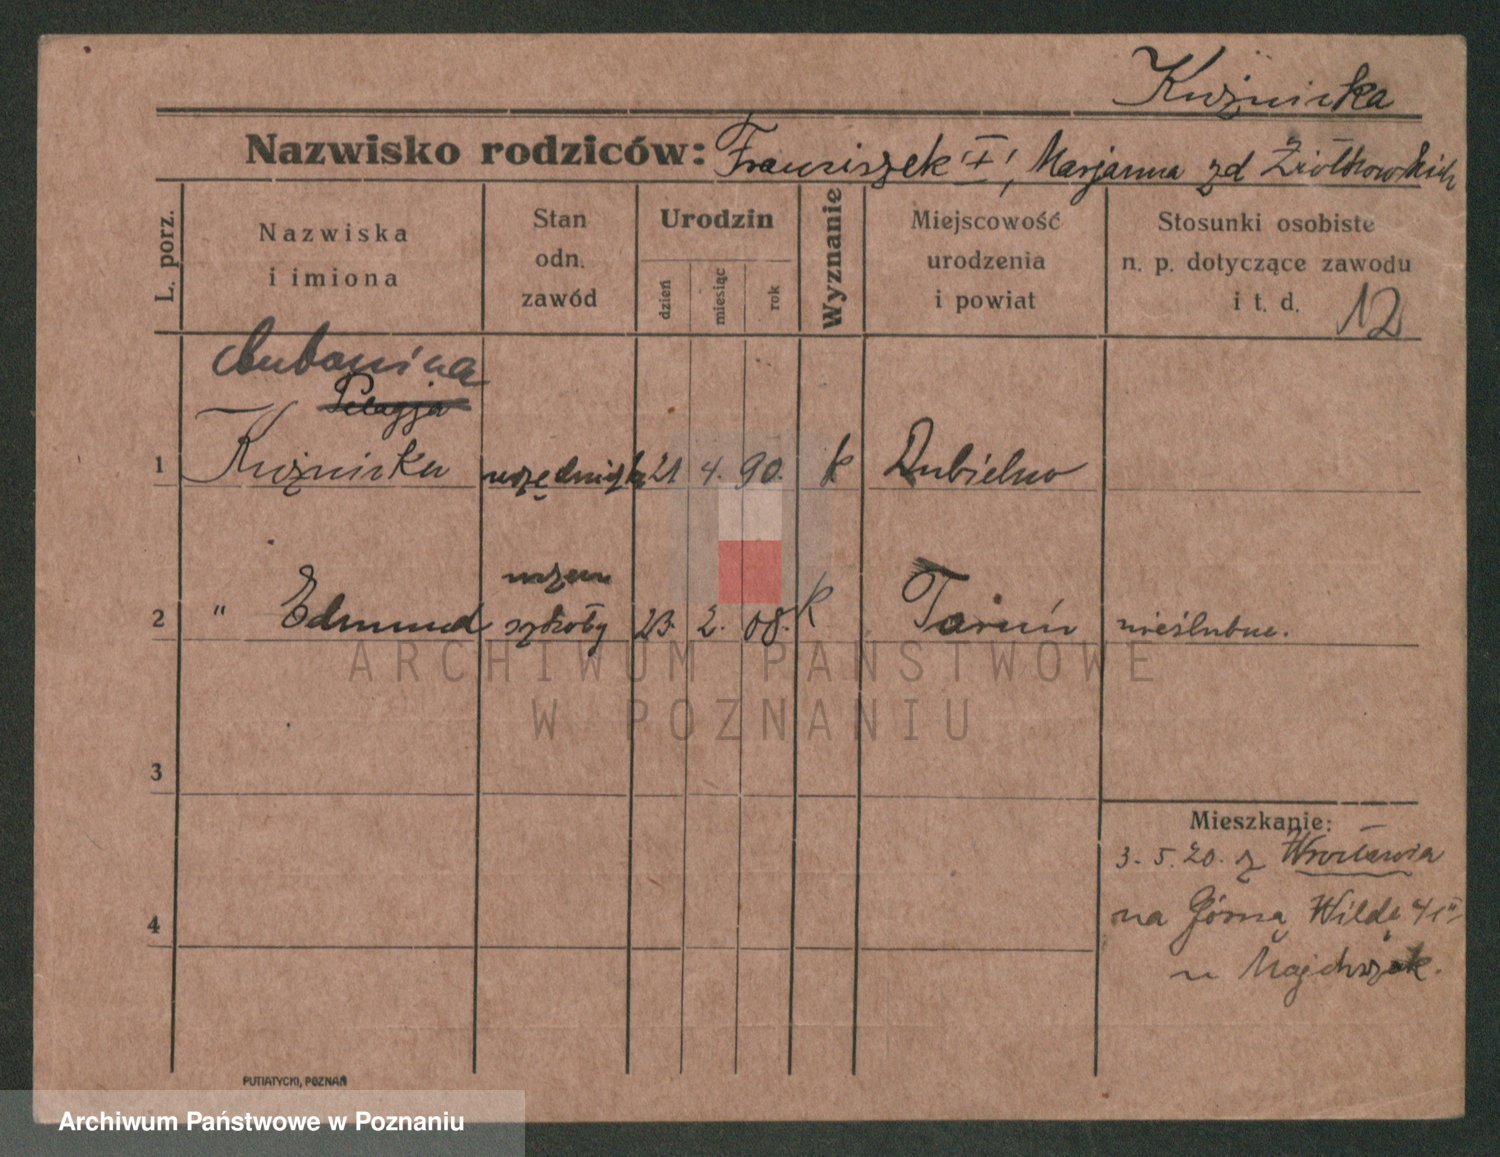 Kuźnicka
Nazwisko rodziców: Franciszek 'I', Marjanna zd Ziółkowskich
L. porz.
Nazwiska
i imiona
Stan
odn.
zawód
Urodzin
dzień
miesiąc
rok
Wyznanie
Miejscowość
urodzenia
i powiat
Stosunki osobiste
n. p. dotyczące zawodu
i t. d. 12
Antonina
Pelagja
1 Kuźnicka 21 4. 90. k Dubielno
uczeń
2 " Edmund szkoły 23. 2. 08. k Toruń nieślubne.
ARCHIWUM PAŃSTWOWE
W POZNANIU
3
Mieszkanie:
3. 5. 20. z Wrocławia
na Górną Wildę 41
4
u Majchrzak.
PUTIATYCKI, POZNAŃ
Archiwum Państwowe w Poznaniu